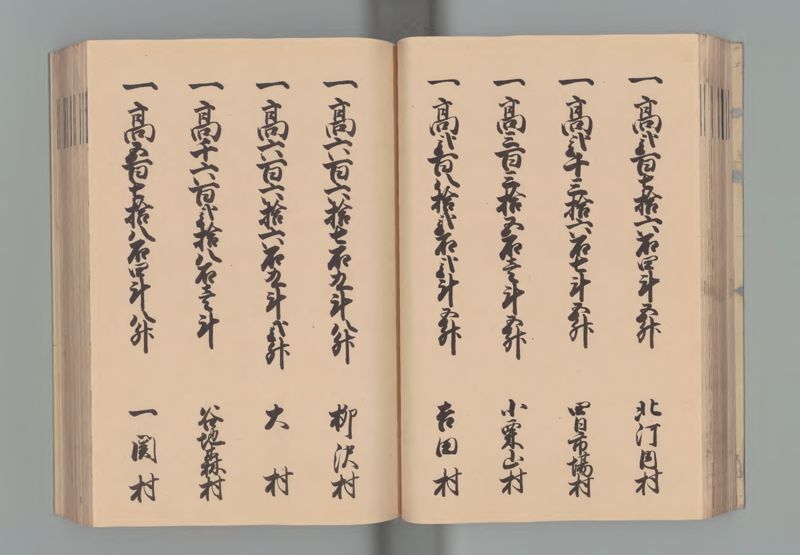 一高弐百七拾六石四斗五升 北汀目村
一高弐千三拾六石七斗五升 四日市場村
一高三百三拾五石壱斗五升 小栗山村
一高弐百八拾弐石弐斗五升 吉田村
一高六百六拾七石九斗八升 柳沢村
一高六百六拾六石九斗弐升 大村
一高千六百弐拾八石壱斗 谷地森村
一高五百七拾八石四斗八升 一関村